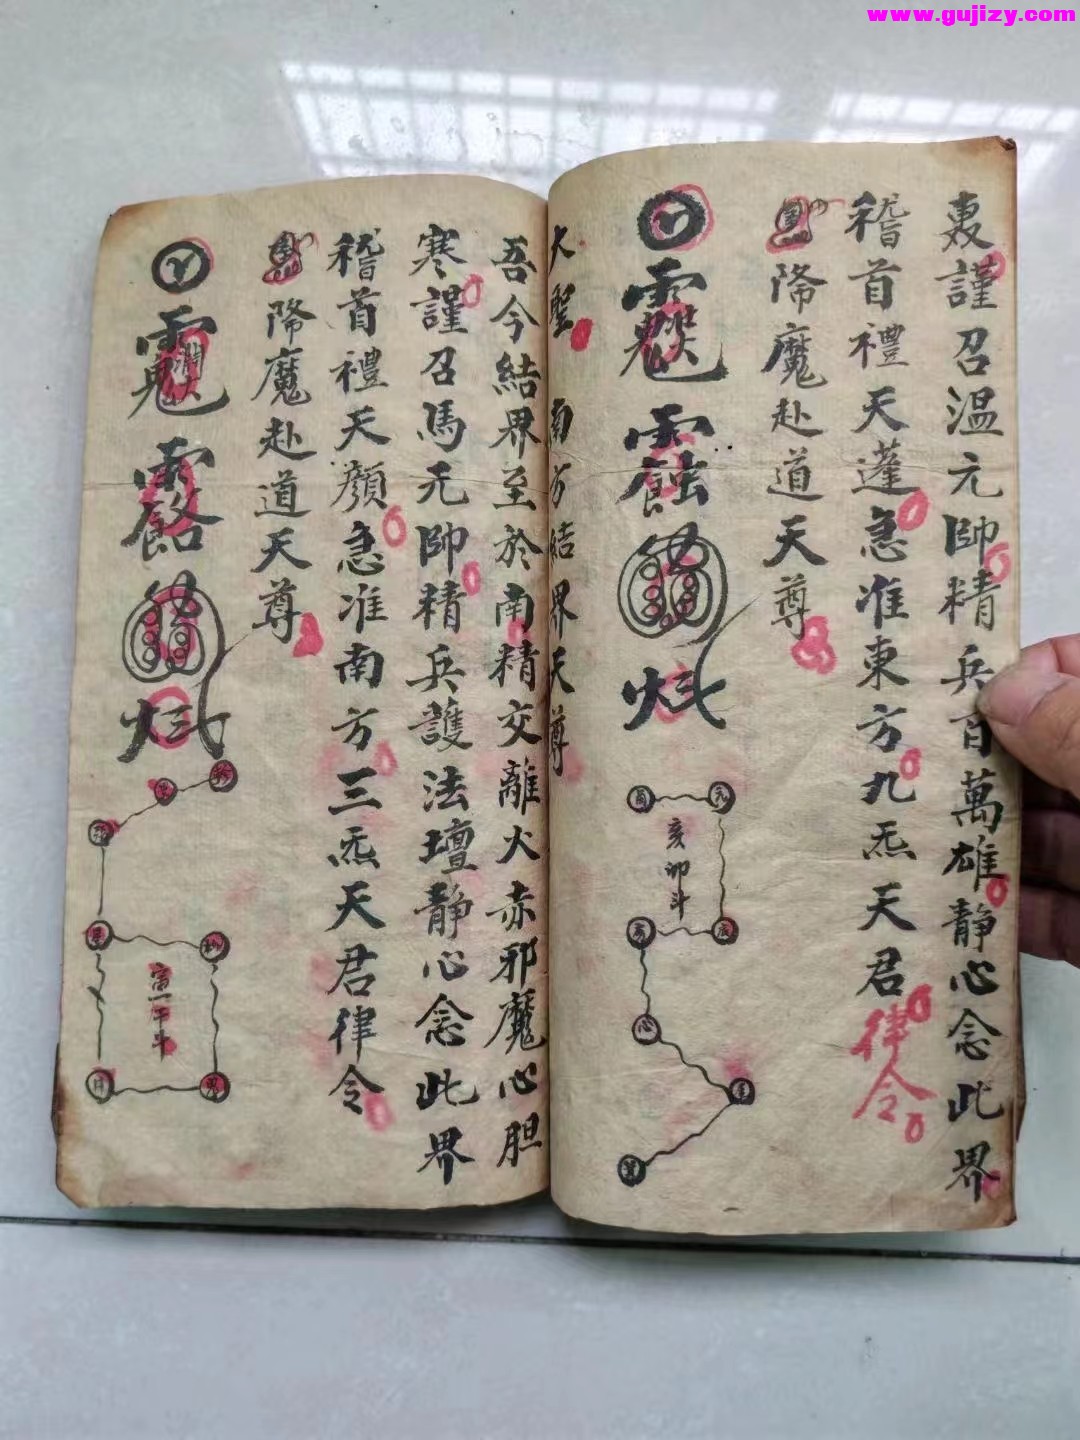 www.gujizy.com
裏謹召温元帥精兵百萬雄静心念此界
稽首禮天蓬急准東方九炁天君律令
降魔赴道天尊
亥卯斗
心
大聖南方結界天尊
吾今結界至於南精交離火赤邪魔心胆
寒謹召馬元帥精兵護法壇静心念此界
稽首禮天顏急准南方三炁天君律令
降魔赴道天尊
寅午斗